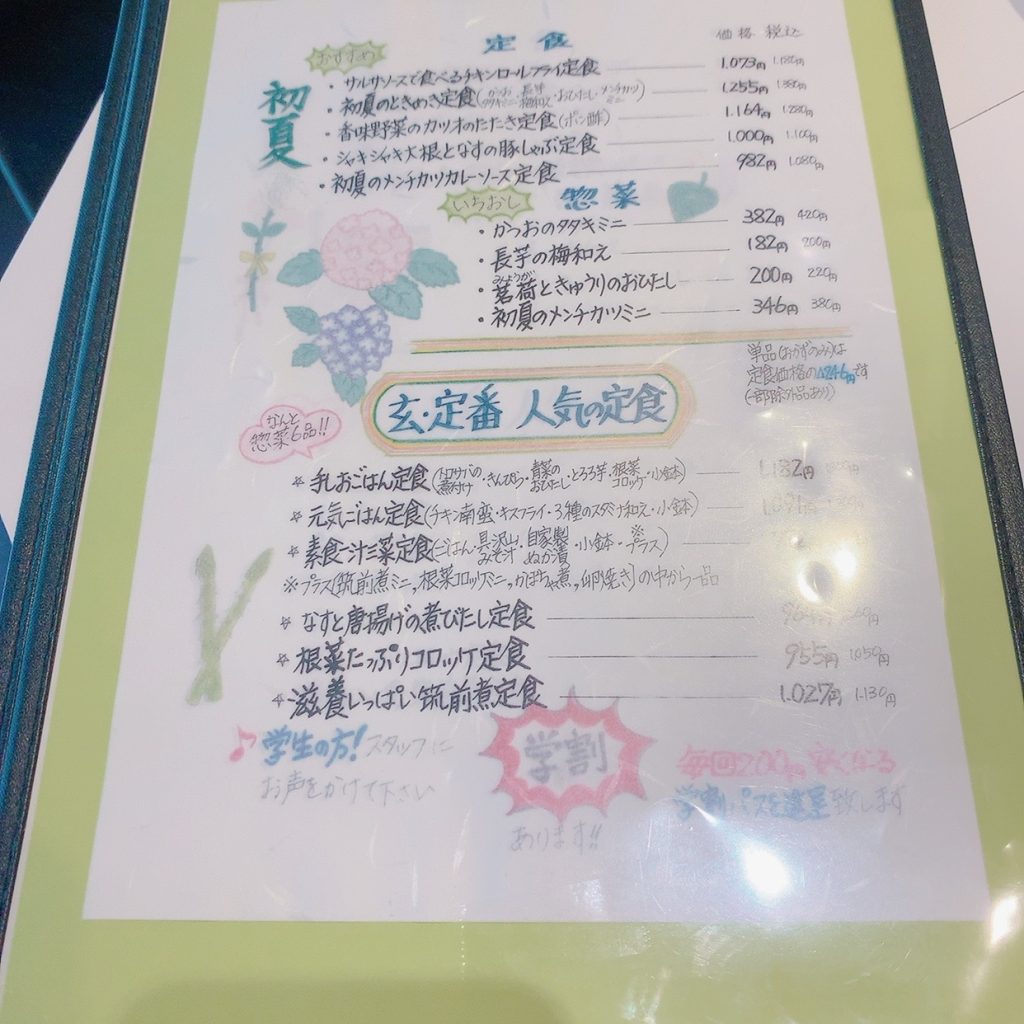 定食
価格 税込
おすすめ
初夏
・サルサソースで食べるチキンロールフライ定食 1.073円 1.180円
・初夏のときめき定食(かつおタタキミニ・長芋梅和え・おひたし・メンチカツミニ) 1.255円 1.380円
・香味野菜のカツオのたたき定食(ポン酢) 1.164円 1.280円
・シャキシャキ大根となすの豚しゃぶ定食 1.000円 1.100円
・初夏のメンチカツカレーソース定食 982円 1.080円
いちおし 惣菜
・かつおのタタキミニ 382円 420円
・長芋の梅和え 182円 200円
・茗荷ときゅうりのおひたし 200円 220円
みょうが
・初夏のメンチカツミニ 346円 380円
単品(おかずのみ)は
定食価格の△246円です
(一部除外品あり)
玄・定番 人気の定食
なんと
惣菜6品!!
☆ 手しおごはん定食(トロサバの煮付け・きんぴら・青菜のおひたし・とろろ芋・根菜コロッケ・小鉢) 1.182円
☆ 元気ごはん定食(チキン南蛮・キスフライ・3種のスタミナ和え・小鉢)
☆ 素食一汁三菜定食(ごはん・具沢山みそ汁・自家製ぬか漬・小鉢・※プラス)
※プラス(筑前煮ミニ,根菜コロッケミニ,かぼちゃ煮,卵焼き)の中から一品
☆ なすと唐揚げの煮びたし定食
☆ 根菜たっぷりコロッケ定食 955円 1.050円
☆ 滋養いっぱい筑前煮定食 1.027円 1.130円
♪学生の方!スタッフに
お声をかけて下さい
学割
あります!!
毎回200円安くなる
学割パスを進呈致します